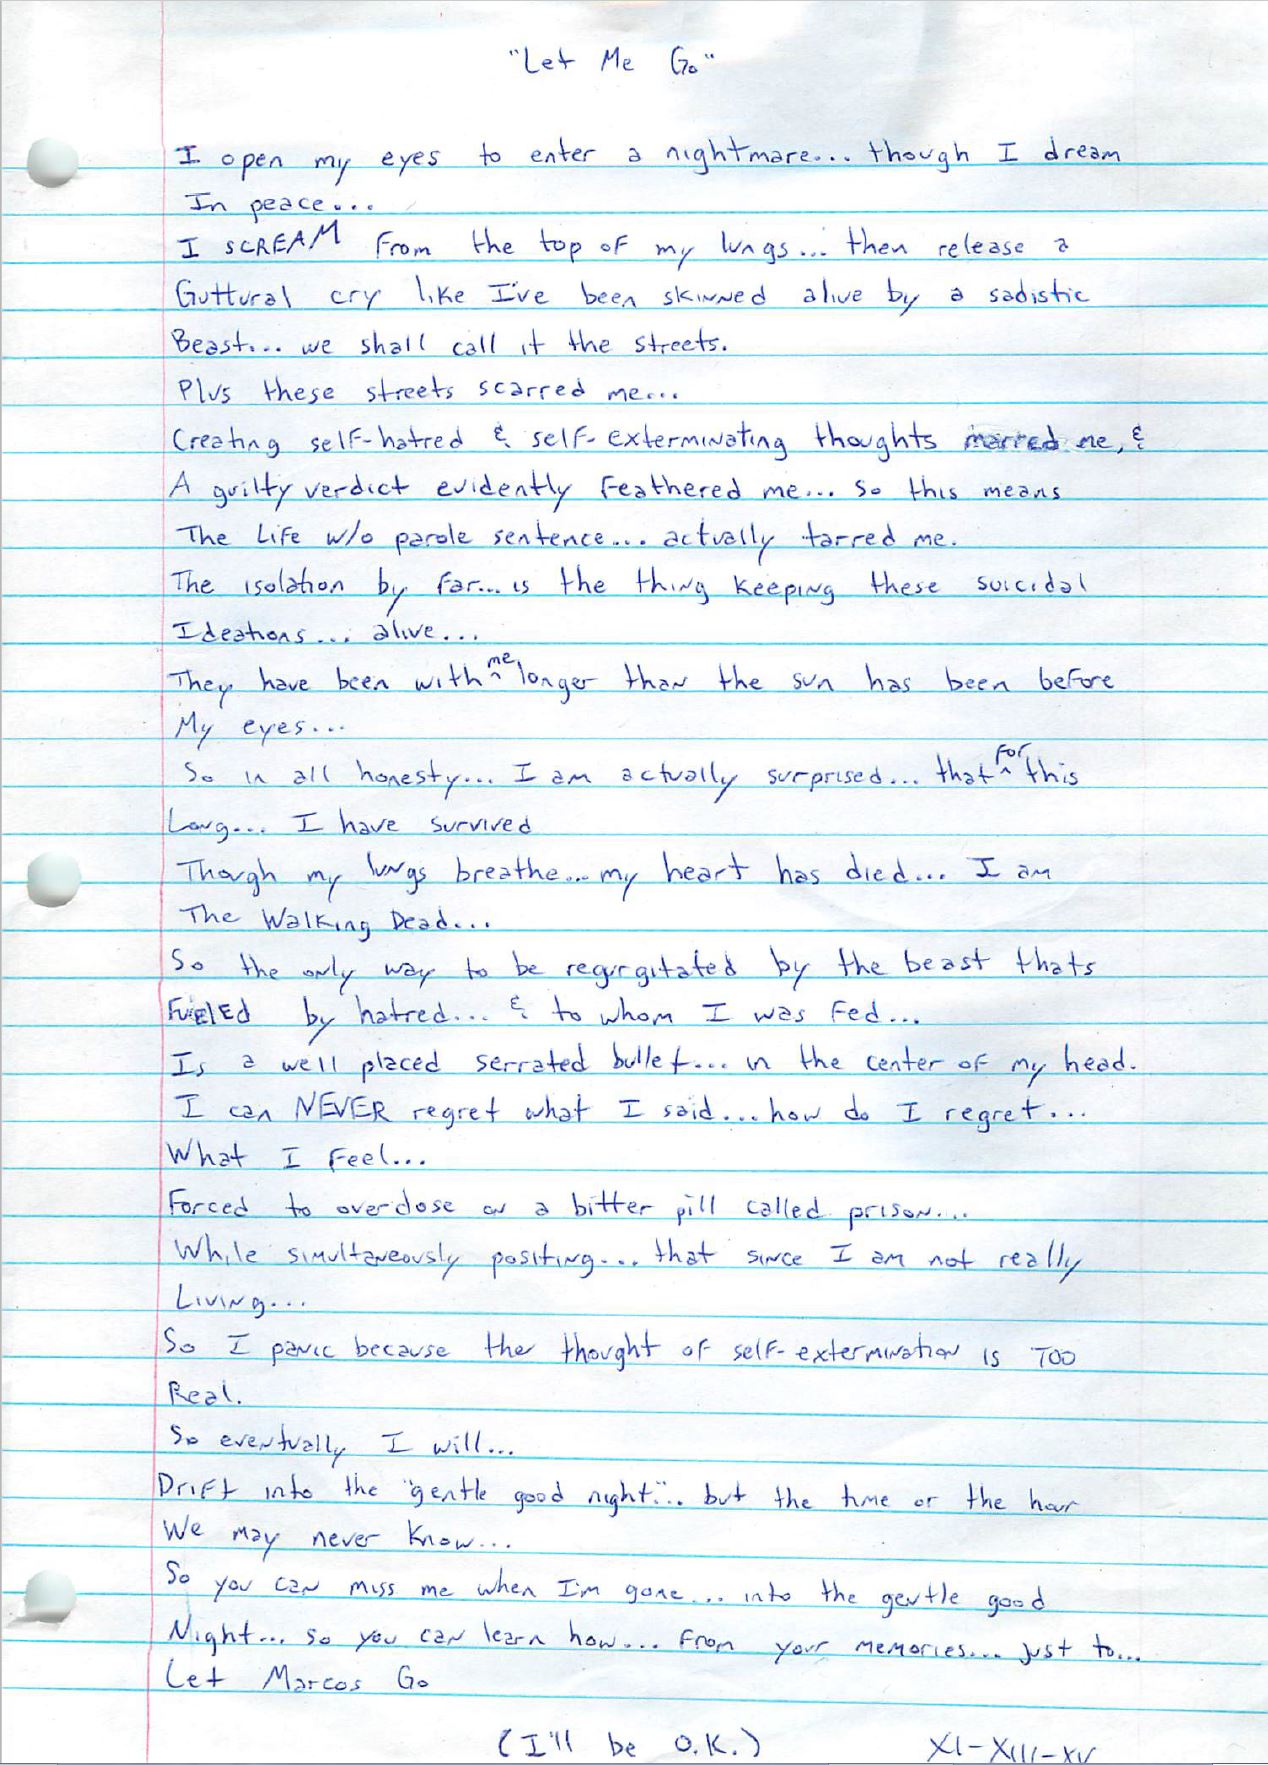 "Let Me Go"
I open my eyes to enter a nightmare... though I dream
In peace...
I SCREAM from the top of my lungs... then release a
Guttural cry like I've been skinned alive by a sadistic
Beast... we shall call it the streets.
Plus these streets scarred me...
Creating self-hatred & self-exterminating thoughts marred me, &
A guilty verdict evidently feathered me... so this means
The Life w/o parole sentence... actually tarred me.
The isolation by far... is the thing keeping these suicidal
Ideations... alive...
They have been with me longer than the sun has been before
My eyes...
So in all honesty... I am actually surprised... that for this
Long... I have survived
Though my lungs breathe... my heart has died... I am
The Walking Dead...
So the only way to be regurgitated by the beast thats
Fueled by hatred... & to whom I was fed...
Is a well placed serrated bullet... in the center of my head.
I can NEVER regret what I said... how do I regret...
What I feel...
Forced to overdose on a bitter pill called prison...
While simultaneously positing... that since I am not really
Living...
So I panic because the thought of self-extermination is TOO
Real.
So eventually I will...
Drift into the "gentle good night"... but the time or the hour
We may never know...
So you can miss me when I'm gone... into the gentle good
Night... so you can learn how... from your memories... just to...
Let Marcos Go
(I'll be O.K.) XI-XIII-XV